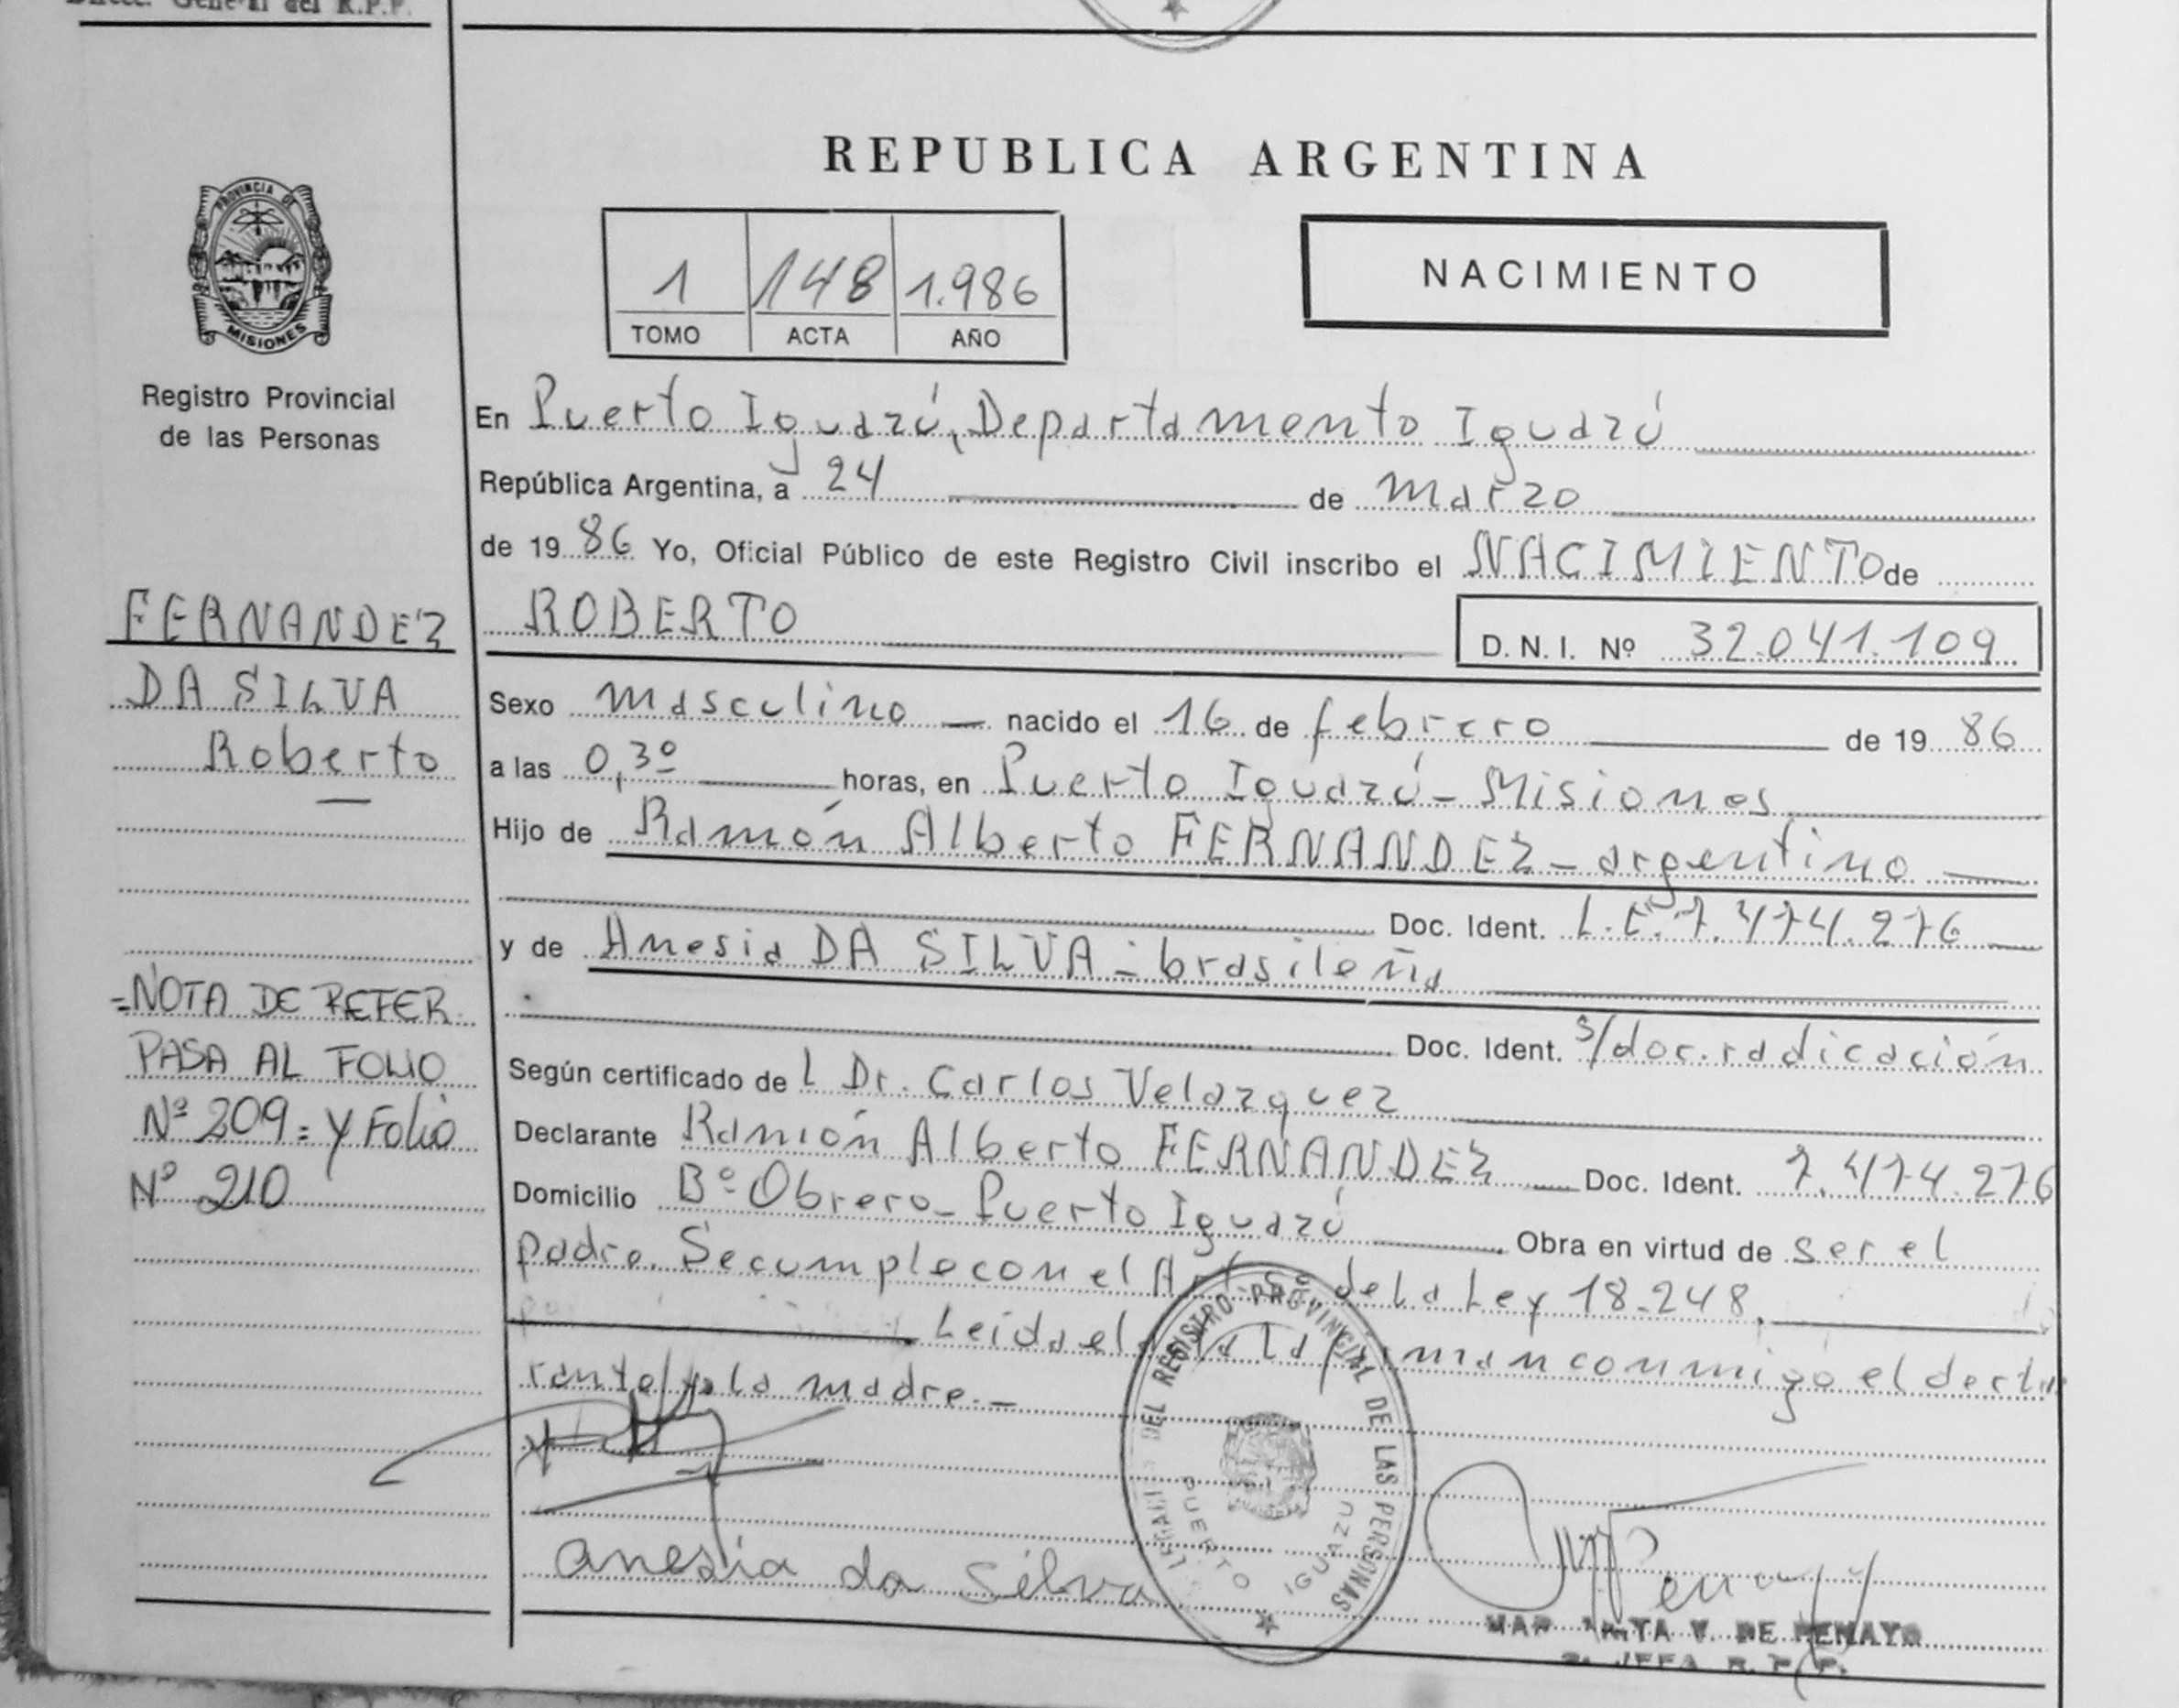 Direcc. General del R.P.P.
REPUBLICA ARGENTINA
PROVINCIA DE
MISIONES
Registro Provincial
de las Personas
1 148 1.986
TOMO ACTA AÑO
NACIMIENTO
En Puerto Iguazú, Departamento Iguazú
República Argentina, a 24 de marzo
de 19 86 Yo, Oficial Público de este Registro Civil inscribo el NACIMIENTO de
ROBERTO
D. N. I. Nº 32.041.109
FERNANDEZ
DA SILVA
Roberto
Sexo masculino nacido el 16 de febrero de 19 86
a las 0,30 horas, en Puerto Iguazú - Misiones
Hijo de Ramón Alberto FERNANDEZ - argentino
Doc. Ident. L.E. 7.474.276
y de Anesia DA SILVA - brasileña
Doc. Ident. s/doc. radicación
Según certificado de l Dr. Carlos Velazquez
Declarante Ramón Alberto FERNANDEZ Doc. Ident. 7.474.276
Domicilio Bº Obrero - Puerto Iguazú Obra en virtud de ser el
padre. Se cumple con el Art. 5º de la Ley 18.248.
Leida el acta la firman conmigo el decla
rante y la madre. -
=NOTA DE REFER.
PASA AL FOLIO
Nº 209 = Y FOLIO
Nº 210
anesia da Silva
DEL REGISTRO PROVINCIAL DE LAS PERSONAS
PUERTO IGUAZU
V. DE PENAYO
JEFA R. P. P.